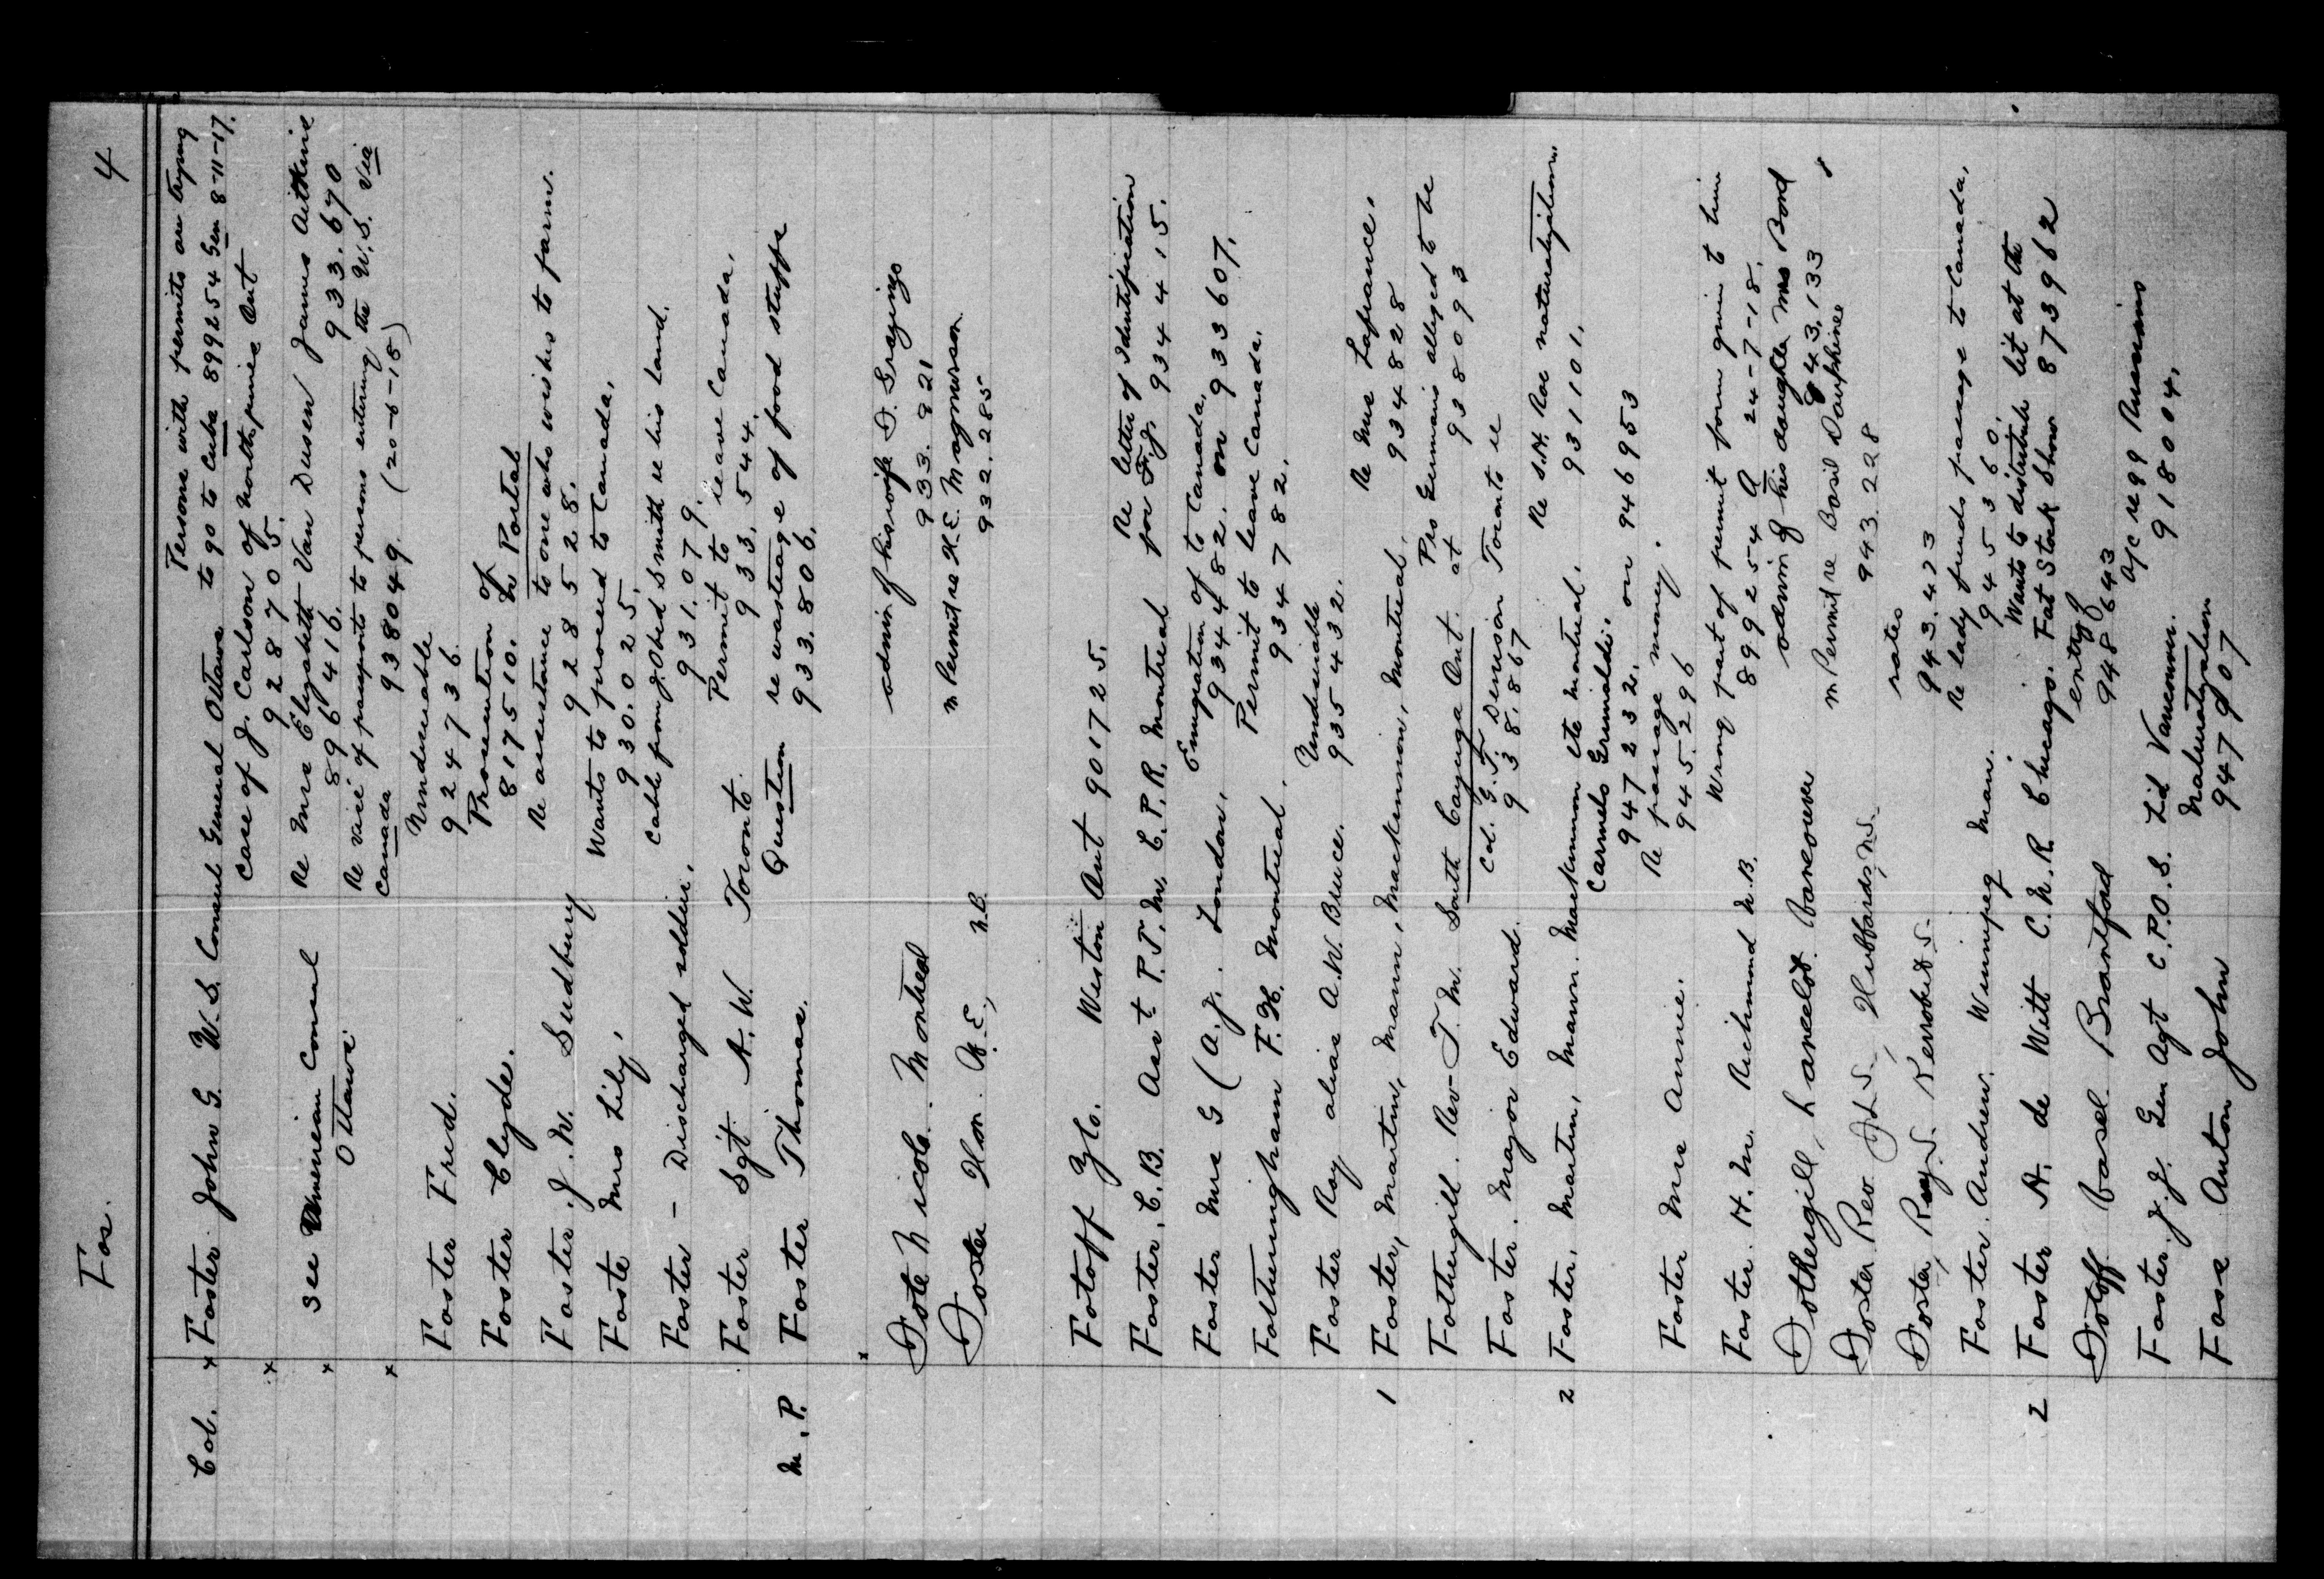 Fos.
4
Persons with permits on trying
Col. x Foster John G. U.S. Consul General Ottawa to go to Cuba 899254 Gen 8-11-17.
x Case of J. Carlson of North pine Ont
928705.
x see American Consul Re Mrs Elizabeth Van Dusen James Aitkins
Ottawa 896416. 933.670
x Re vice of passports to persons entering the U.S. via
Canada 938049 (20-6-18)
Foster Fred. Undesirable
924736.
Foster Clyde. Prosecution of
817510. N Portal
Foster. J. W. Sudbury Re assistance to one who wishes to farm.
928528.
Foste Mrs Lily, Wants to proceed to Canada,
930.025.
Foster – Discharged soldier, Cable from J. Obed Smith re his land.
931.079.
Foster Sgt A.W. Toronto. Permit to leave Canada,
933,544.
M.P. Foster Thomas. Question re wastage of food stuffs
933.806.
x
Fote Nicola. Montreal admin of his wife D.
933.921
Foster Hon. W.E., N.B. m Permit re H.E. Magnusson
932.285
Fotoff Zlo. Weston Ont 901725.
Foster, C.B. Asst P.T.M. C.P.R. Montreal Re letter of Identification
for F.J. 934415.
Foster Mrs G (A.J. London, Emigration of to Canada,
934482, on 933607,
Fotheringham F.H. Montreal. Permit to leave Canada.
934782.
Foster Ray alias A.W. Bruce. Undesirable
935432.
1 Foster, Martin, Mann, Mackinnon, Montreal, Re Mrs Lafrance,
934828
Fothergill. Rev. T.M. South Cayuga Ont. Pro Germans alleged to be
at 938093
Foster. Major Edward. Col. G.T. Denison Toronto re
938.867
2 Foster, Martin, Mann. Mackinnon etc Montreal. Re S.H. Roe naturalization,
931101,
Carmelo Grimaldi.
947232. on 946953
Foster Mrs Annie. Re passage money.
945.296
Foster. H.M. Richmond N.B. Wrong part of permit form given to him
899254 A 24-7-18.
Fothergill, Lancelot. Vancouver admin of his daughter Mrs Bond
943,133
Foster Rev J.W., Hubbards, N.S. m Permit re Basil Dauphinee
943.228
Foster, Rev. Kerrobert S. rates
943.423
Foster. Andrew. Winnipeg Man. Re lady friends passage to Canada,
945360.
2 Foster A. de Witt C.N.R. Chicago. Wants to distribute lit at the
Fat Stock Show 873962
Fotoff Vasel Brantford entry of
948643
Foster. J.J. Gen Agt C.P.O.S. Ltd Vancouver. a/c re 99 Russians
918004,
Fose Anton John Naturalization
947907